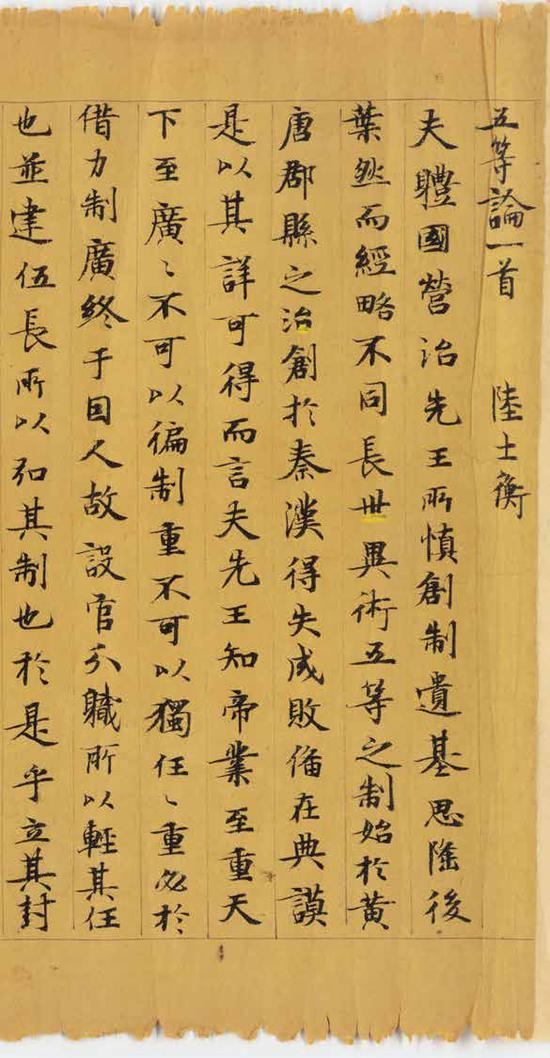 五等論一首 陸士衡
夫軆國營治先王所慎創制遺基思隆後
葉然而經略不同長世異術五等之制始於黃
唐郡縣之治創於秦漢得失成敗俻在典謨
是以其詳可得而言夫先王知帝業至重天
下至廣〻不可以徧制重不可以獨任〻重必於
借力制廣終于因人故設官分職所以輕其任
也並建伍長所以弘其制也於是乎立其封